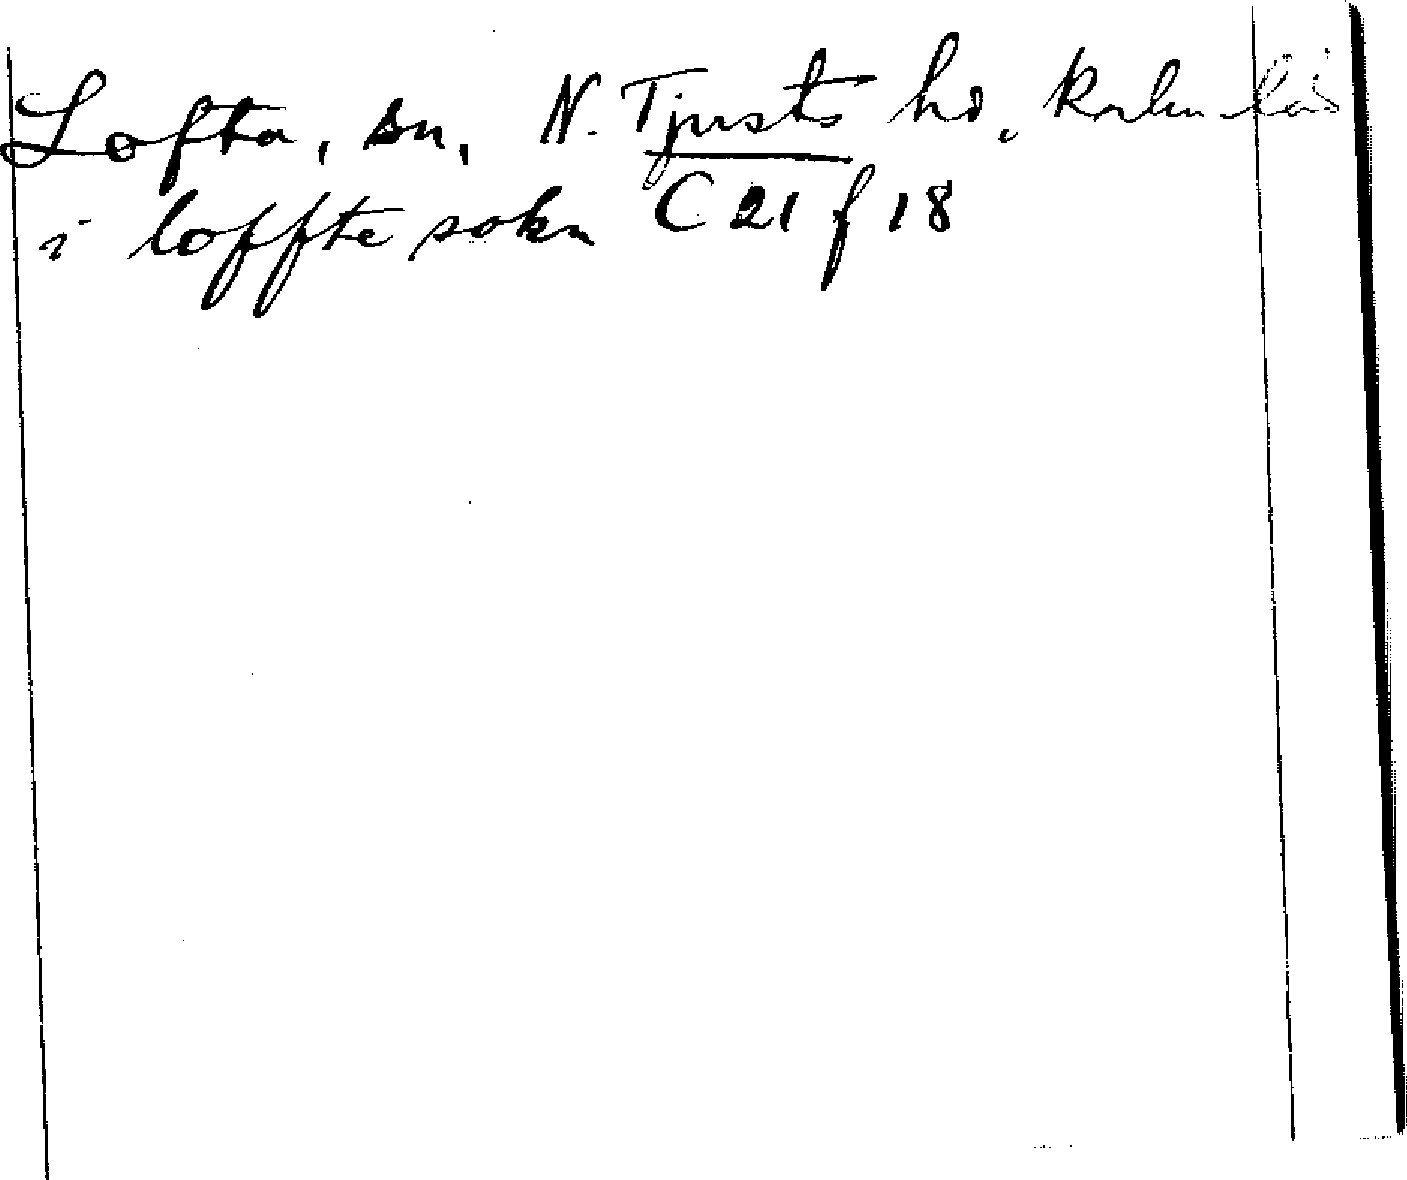 Lofta, sn, N. Tjusts hd, Kalm. län
i loffte sokn C 21 f 18